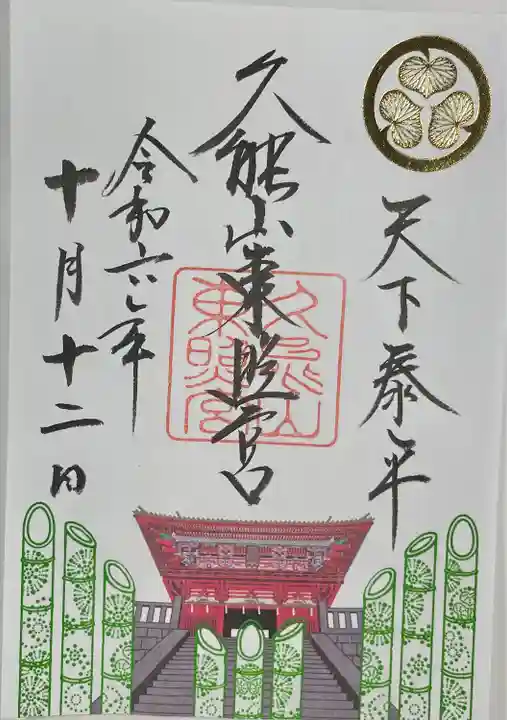 天下泰平
久能山東照宮
久能山
東照宮
令和六年
十月十二日